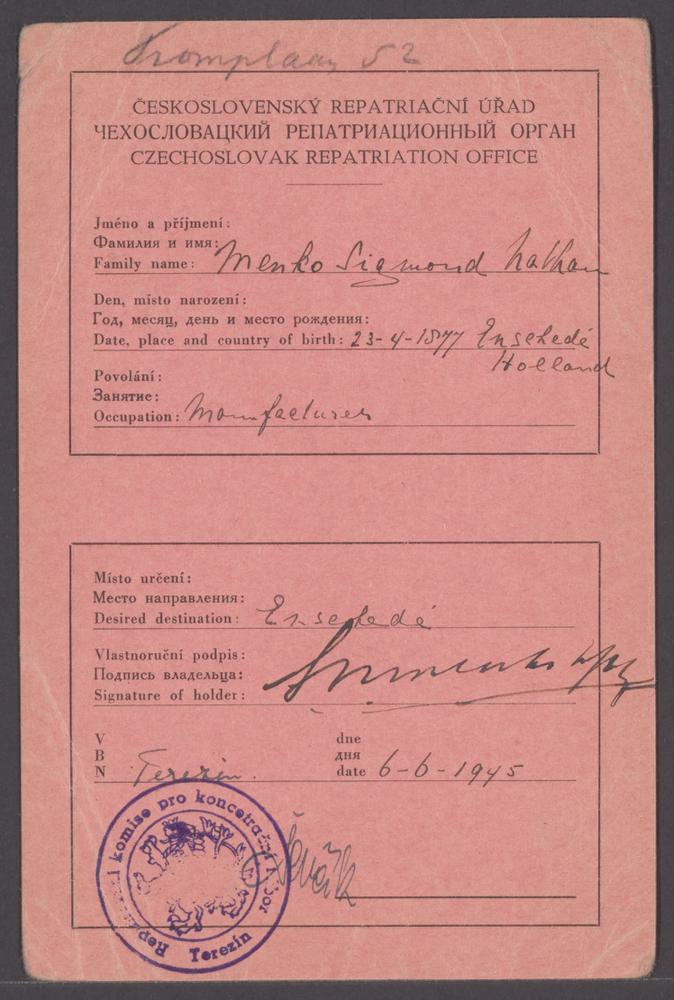 Tromplaan 52
ČESKOSLOVENSKÝ REPATRIAČNÍ ÚŘAD
ЧЕХОСЛОВАЦКИЙ РЕПАТРИАЦИОННЫЙ ОРГАН
CZECHOSLOVAK REPATRIATION OFFICE
Jméno a příjmení:
Фамилия и имя:
Family name: Menko Sigmond Nathan
Den, místo narození:
Год, месяц, день и место рождения:
Date, place and country of birth: 23-4-1877 Enschedé
Holland
Povolání:
Занятие:
Occupation: Manufacturer
Místo určení:
Место направления:
Desired destination: Enschedé
Vlastnoruční podpis:
Подпись владельца:
Signature of holder:
V dne
В дня
N Terezín. date 6-6-1945
Repatriační komise pro koncetrační tábor
Terezín